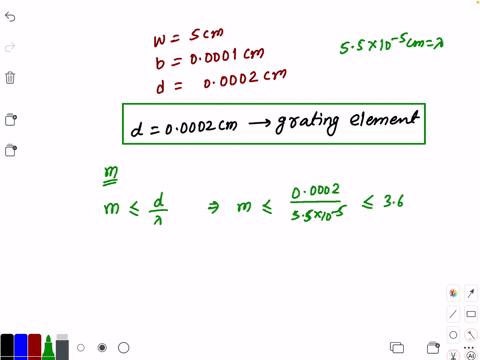 w = 5cm
b = 0.0001 cm
d = 0.0002 cm
5.5×10⁻⁵cm=λ
d = 0.0002 cm → grating element
m
m ≤ d/λ ⇒ m ≤ 0.0002/5.5×10⁻⁵ ≤ 3.6